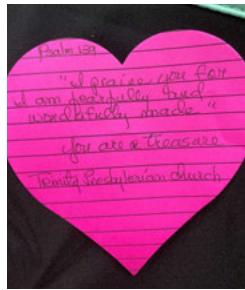 Psalm 139
"I praise you for
I am fearfully and
wonderfully made"
You are a treasure
Trinity Presbyterian Church